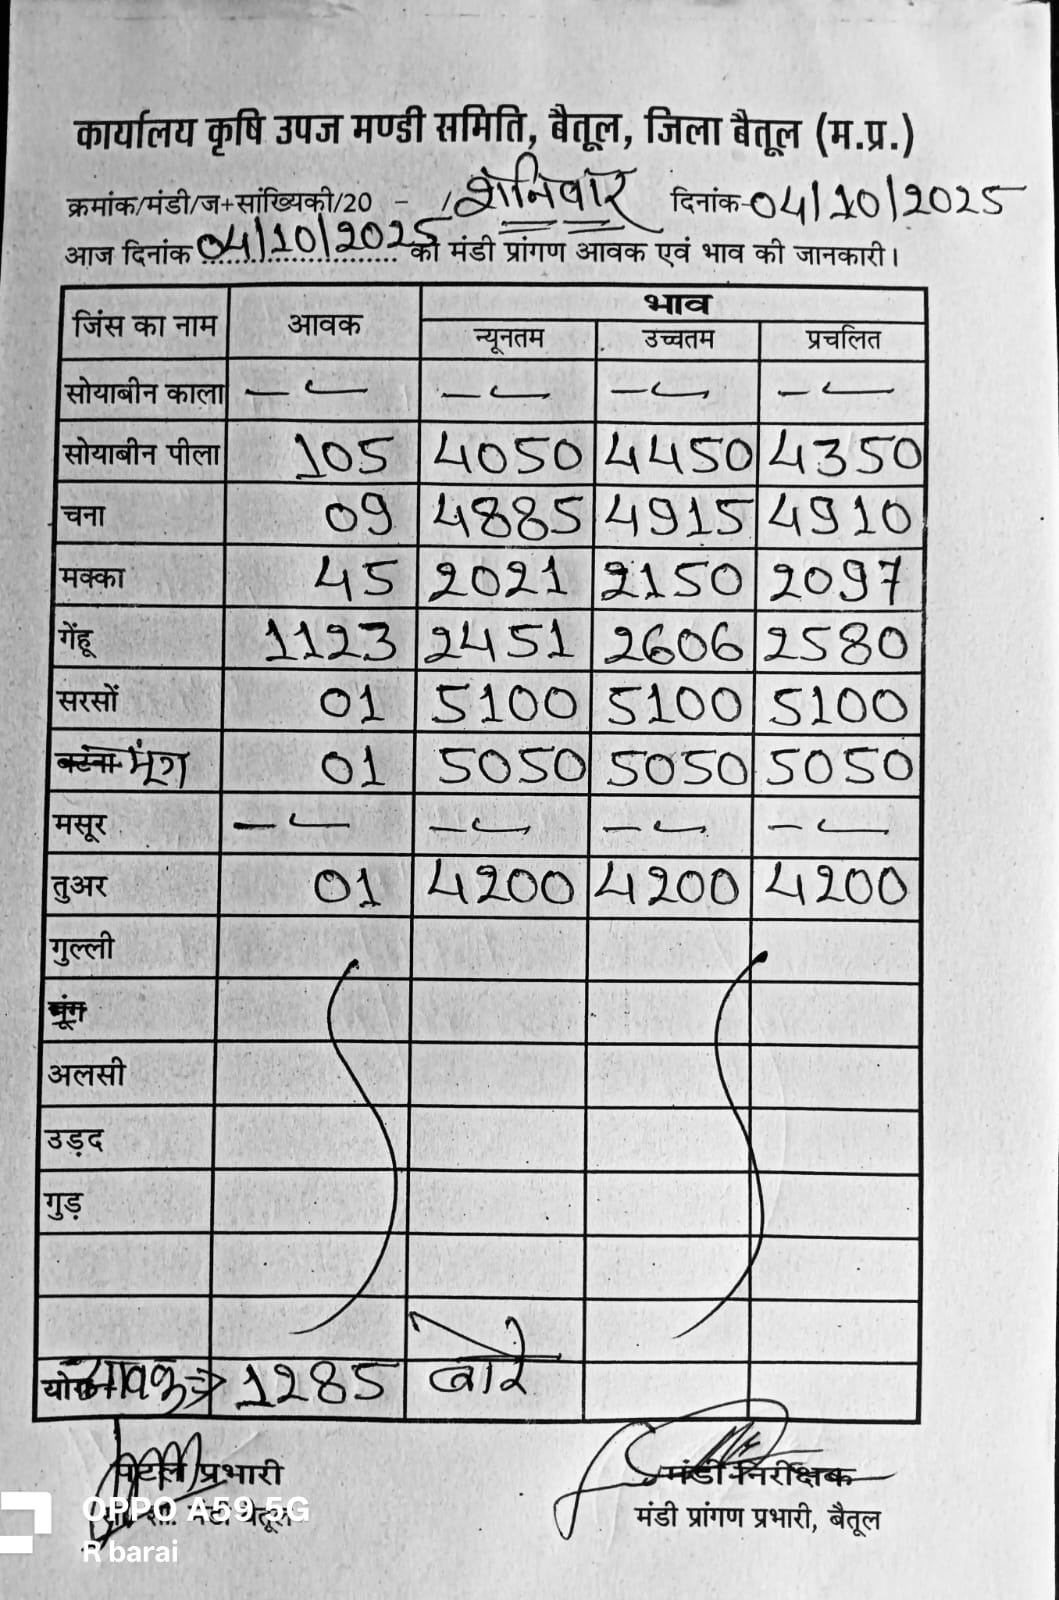 कार्यालय कृषि उपज मण्डी समिति, बैतूल, जिला बैतूल (म.प्र.)
क्रमांक/मंडी/ज+सांख्यिकी/20 - / शनिवार दिनांक-04/10/2025
आज दिनांक 04/10/2025 को मंडी प्रांगण आवक एवं भाव की जानकारी।
जिंस का नाम आवक भाव
न्यूनतम उच्चतम प्रचलित
सोयाबीन काला — — — —
सोयाबीन पीला 105 4050 4450 4350
चना 09 4885 4915 4910
मक्का 45 2021 2150 2097
गेंहू 1123 2451 2606 2580
सरसों 01 5100 5100 5100
मूंग 01 5050 5050 5050
मसूर — — — —
तुअर 01 4200 4200 4200
गुल्ली
मूंग
अलसी
उड़द
गुड़
आवक 1285 बोरे
प्रभारी मंडी निरीक्षक
मंडी बैतूल मंडी प्रांगण प्रभारी, बैतूल
OPPO A59 5G
R barai